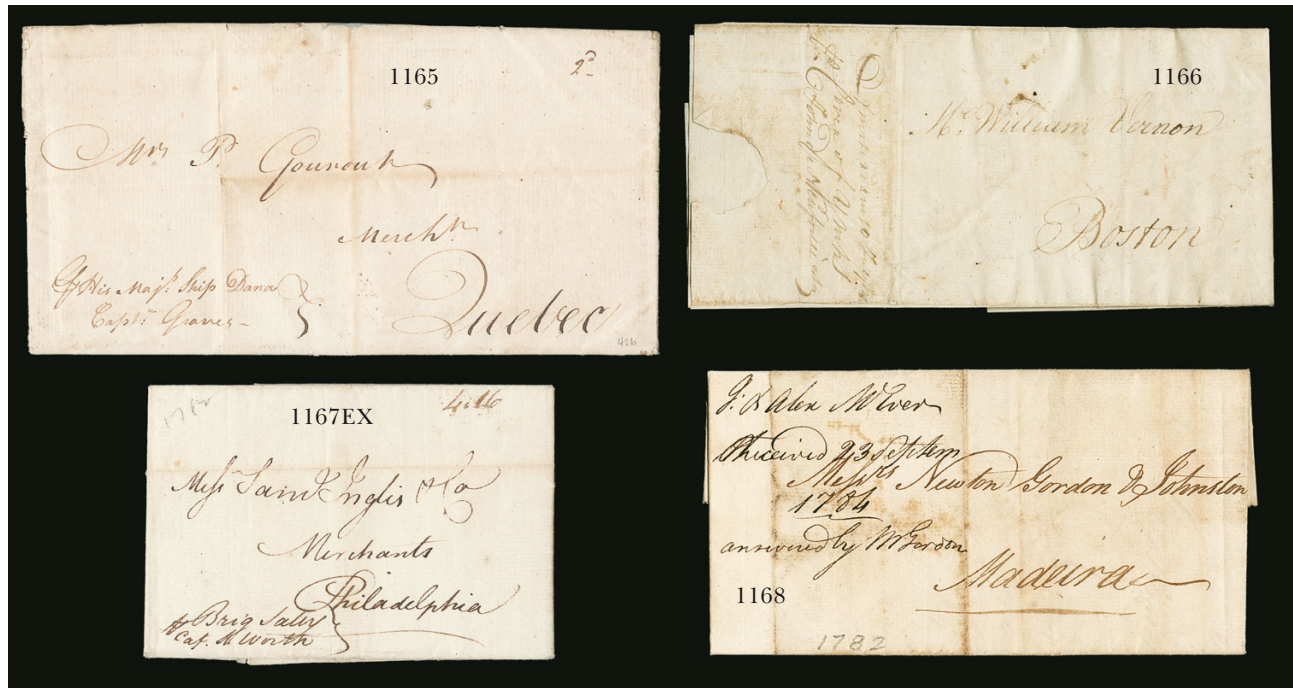 1165
2d
Mrs P. Gourout
Merchtt
Quebec
His Maj. Ship Dana
Captn Graves
426
1166
Mr. William Vernon
Boston
1167EX
4.16
Messrs Saml Inglis & Co
Merchants
Philadelphia
Brig Sally
Cap. Worth
J. & Alex McEver
Received 23 Septem
Messrs Newton Gordon & Johnston
1784
answered by Mr Gordon
Madeira
1168
1782